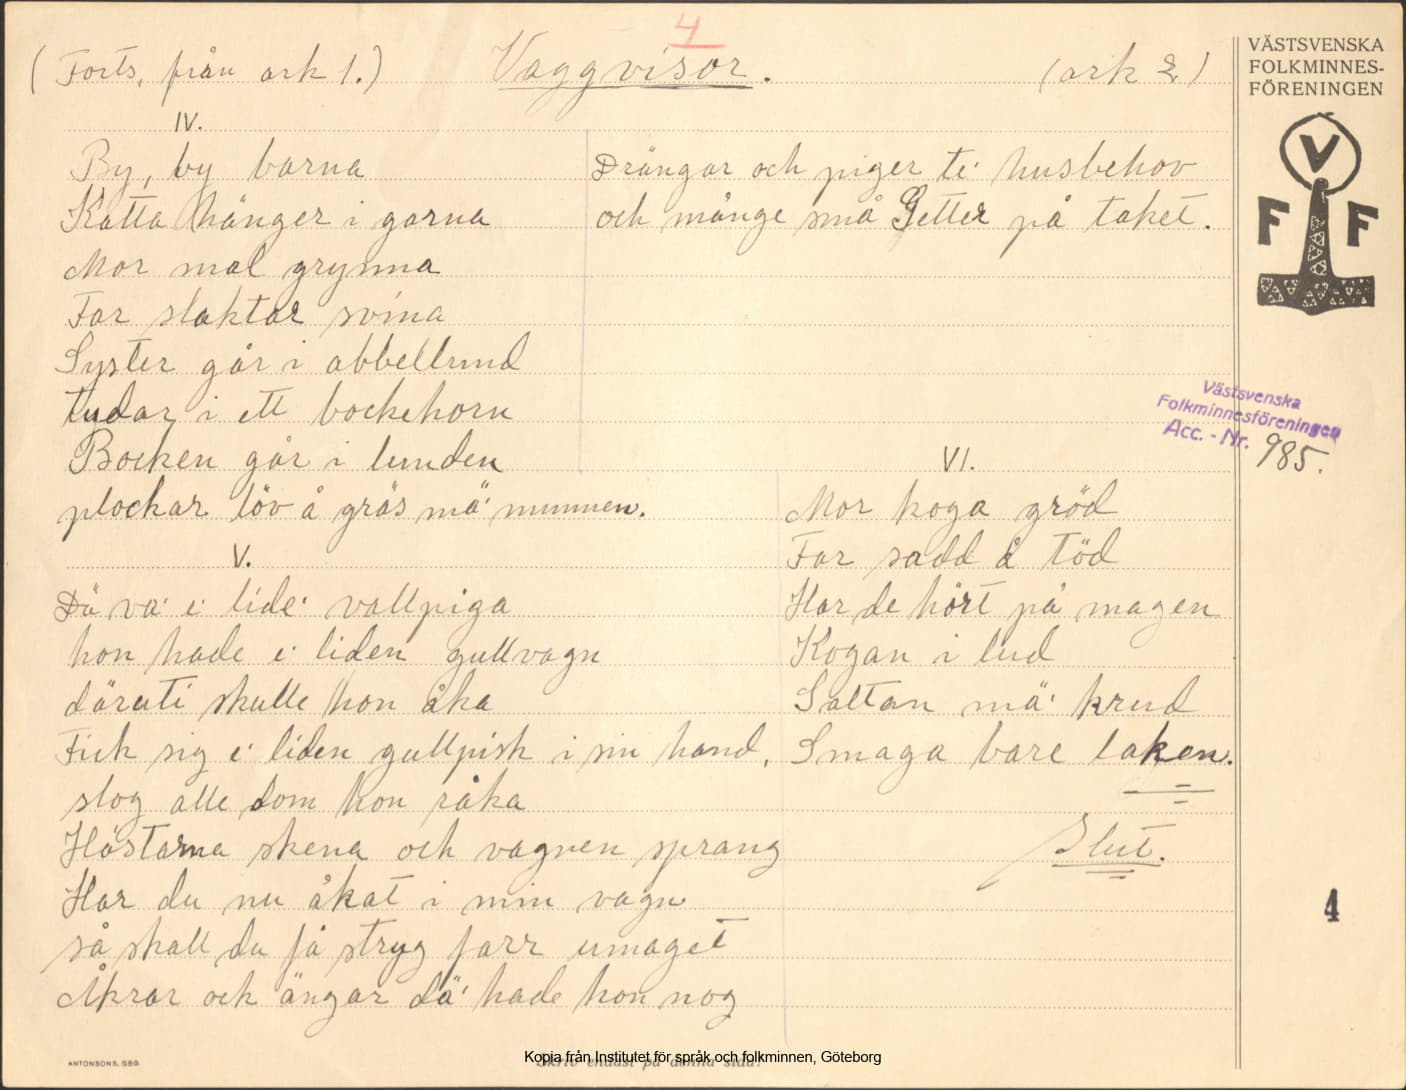 4
(Forts. från ark 1.) Vaggvisor. (ark 2)
VÄSTSVENSKA
FOLKMINNES-
FÖRENINGEN
V
F F
IV.
By, by barna
Katta hänger i garna
Mor mal grynna
Far slaktar svina
Syster går i abbellund
tudar i ett bockehorn
Bocken går i lunden
plockar löv å gräs mä' munnen.
V.
Dä va' e' lide' vallpiga
hon hade e' liden gullvagn
däruti skulle hon åka
Fick sig e' liden gullpisk i sin hand,
slog alle dom hon råka
Hästarna skena och vagnen sprang
Har du nu åkat i min vagn
så skall du få stryg farr umaget
Åkrar och ängar dä' hade hon nog
Drängar och piger te' husbehov
och månge små Getter på taket.
VI.
Mor koga gröd
Far sadd å töd
Har de hört på magen
Kogan i lud
Saltan mä' krud
Smaga bare laken.
Slut.
Västsvenska
Folkminnesföreningen
Acc. - Nr. 985.
4
ANTONSONS, GBG.
Skriv endast på denna sida!
Kopia från Institutet för språk och folkminnen, Göteborg